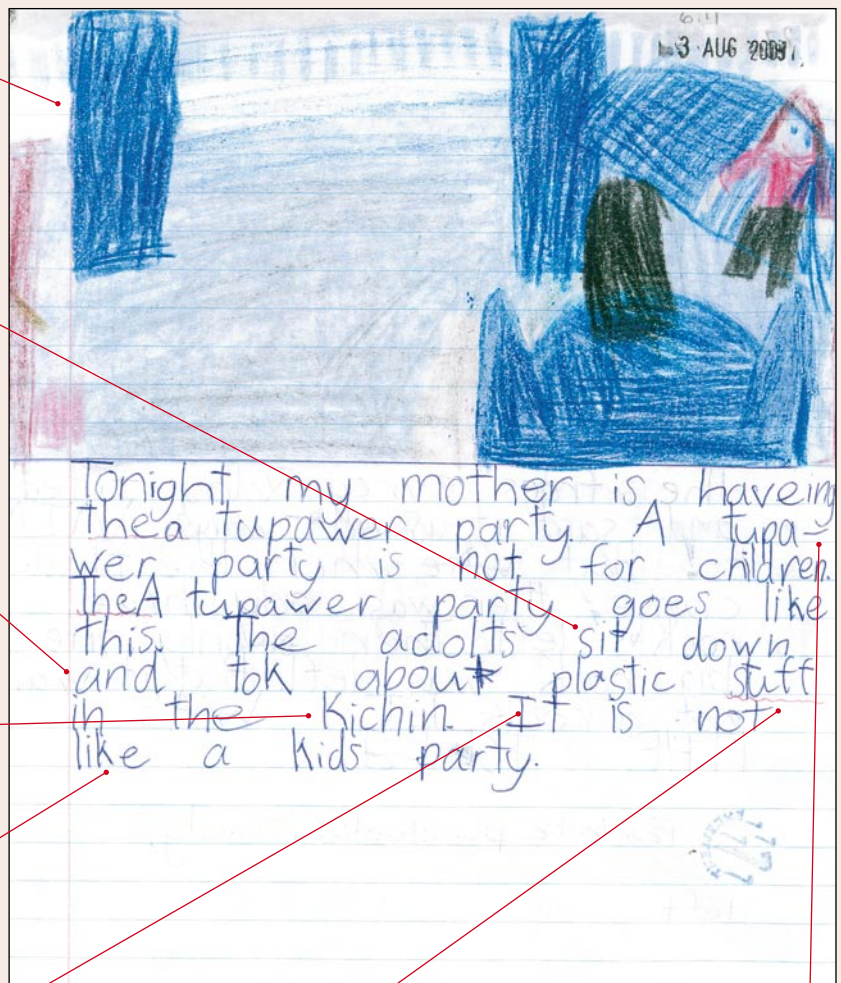 3 AUG 2009
Tonight my mother is haveing
thea tupawer party. A tupa-
wer party is not for children.
TheA tupawer party goes like
this. The adolts sit down
and tok about plastic stuff
in the Kichin. It is not
like a kids party.